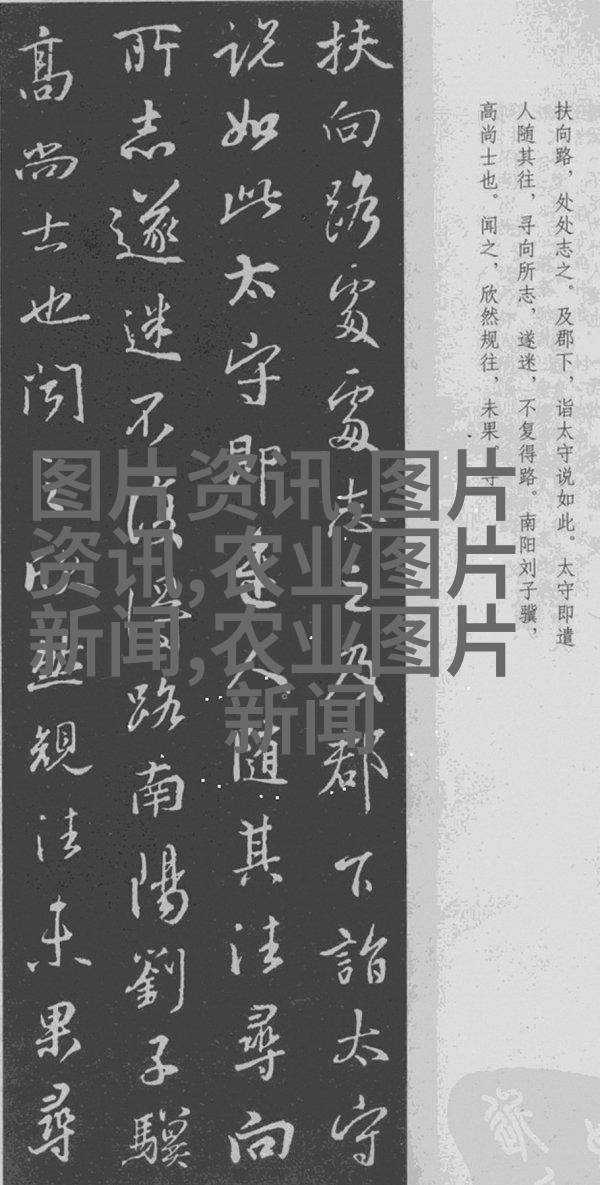 扶向路處處志之及郡下詣太守
说如此太守即遣人随其往尋向
所志遂迷不復得路南陽劉子驥
高尚士也闻之欣然規往未果尋
扶向路，处处志之。及郡下，诣太守说如此。太守即遣
人随其往，寻向所志，遂迷，不复得路。南阳刘子骥，
高尚士也。闻之，欣然规往，未果，寻
图片资讯,图片
资讯,农业图片
新闻,农业图片
新闻